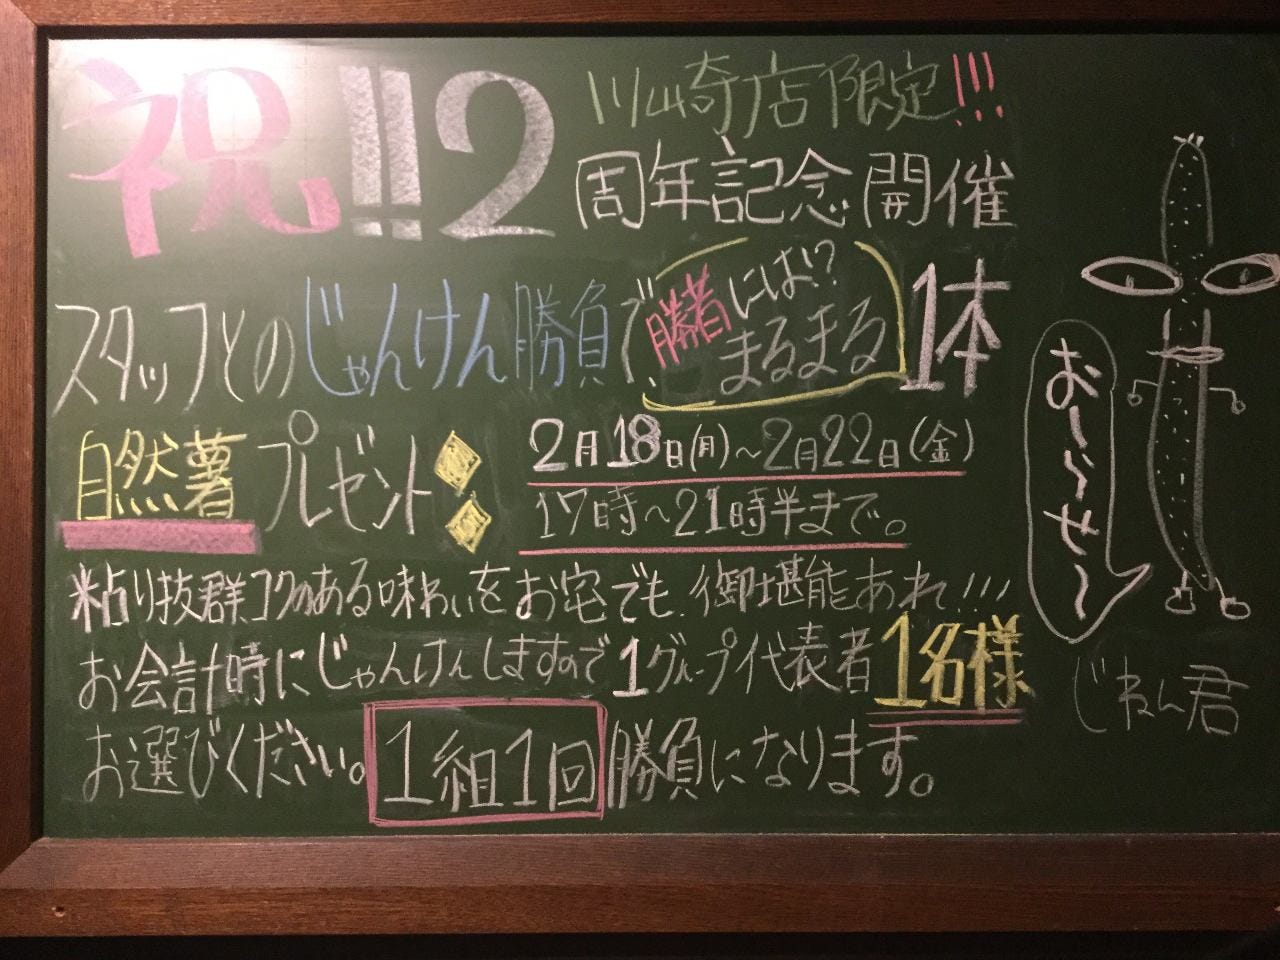 祝!!2
川崎店限定!!!
周年記念開催
スタッフとのじゃんけん勝負で、
勝者には!?
まるまる
1体
自然薯プレゼント
2月18日(月)~2月22日(金)
17時~21時半まで。
粘り抜群、コクのある味わいをお宅でも、御堪能あれ!!!
お会計時にじゃんけんしますので1グループ代表者1名様
お選びください。1組1回勝負になります。
お〜らせ〜
じねん君